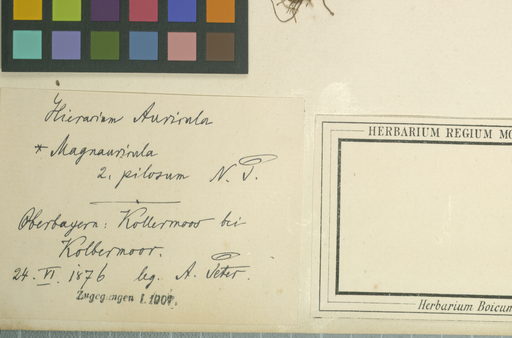 Hieracium Auricula
* Magnauricula
2. pilosum N. P.
Oberbayern: Kollermoos bei
Kolbermoor.
24. VI. 1876 leg. A. Peter.
Zugegangen I. 1907.
HERBARIUM REGIUM MO
Herbarium Boicum